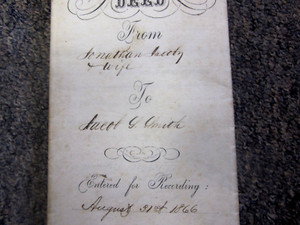 DEED
From
Jonathan
& Wife
To
Jacob G. Smith
Entered for Recording:
August 31st 1866